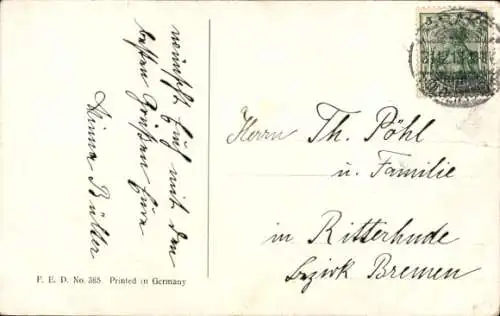 wünscht Euch mit den
besten Grüßen Eure
Minna Büller
Herrn Th. Pöhl
u. Familie
in Ritterhude
Bezirk Bremen
F. E. D. No. 365 Printed in Germany